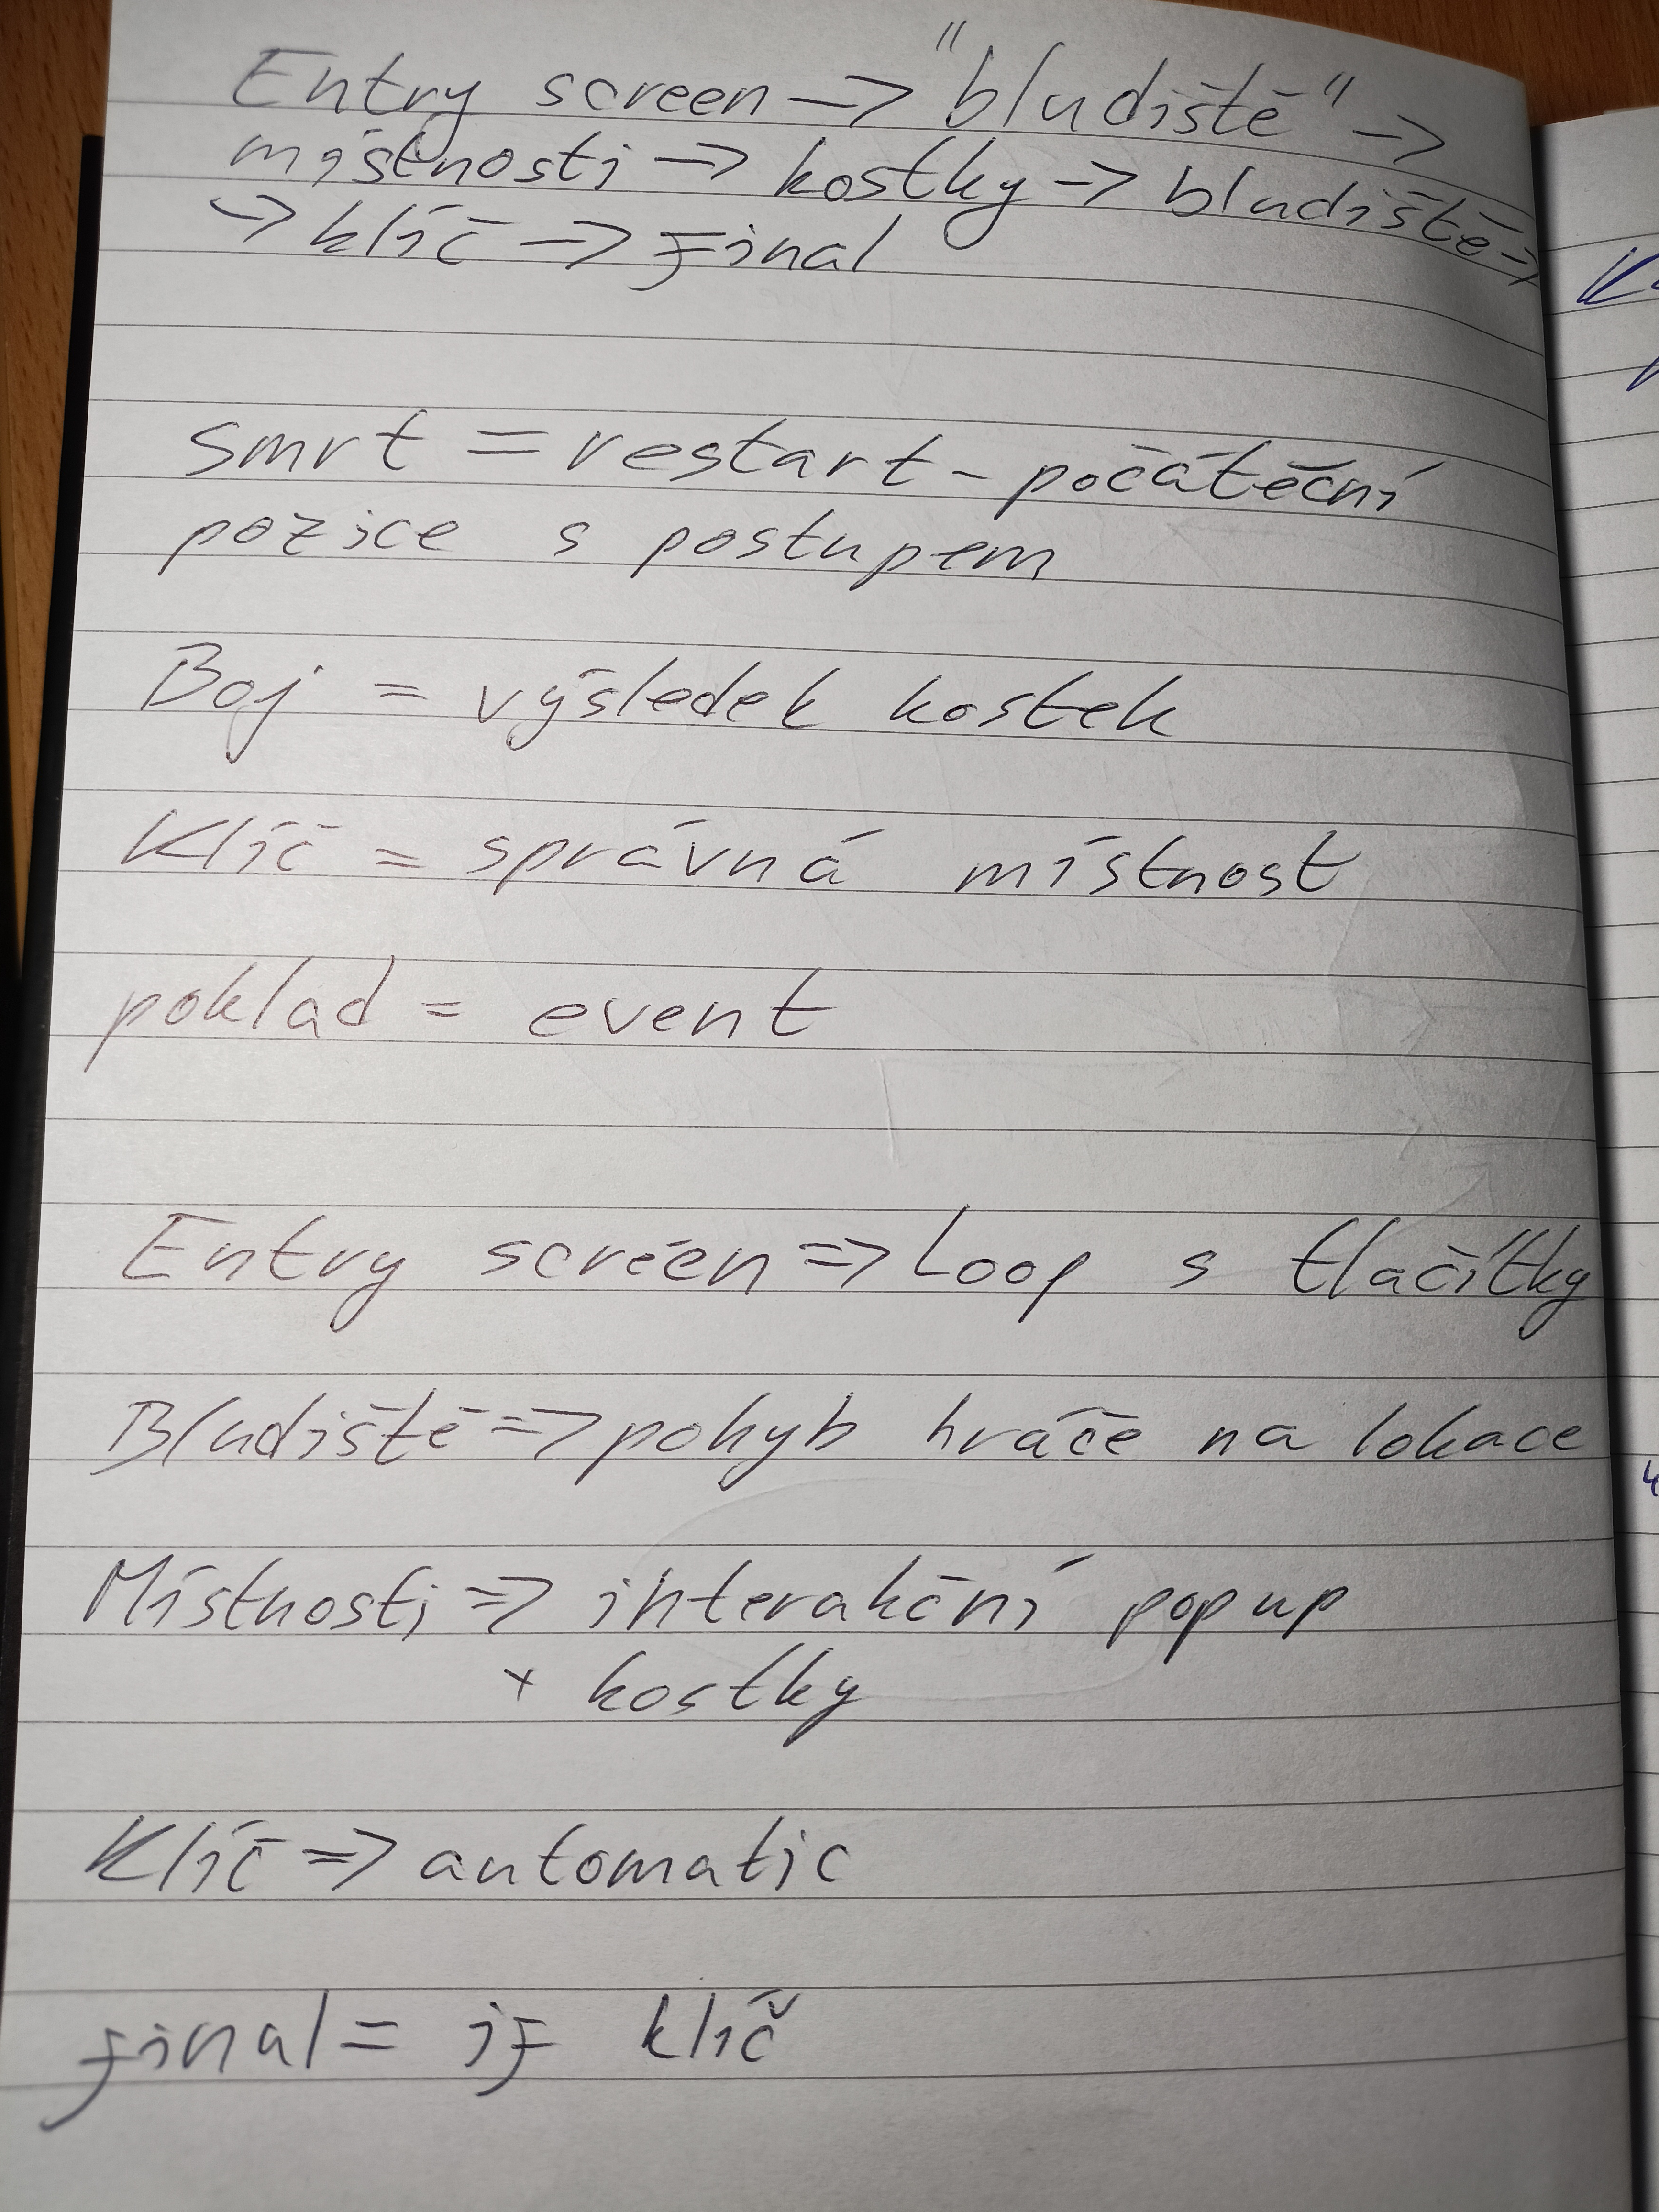 Entry screen -> "bludiště" ->
místnosti -> kostky -> bludiště ->
-> klíč -> final
smrt = restart - počátěční
pozice s postupem
Boj = výsledek kostek
Klíč = správná místnost
poklad = event
Entry screen => Loop s tlačítky
Bludiště => pohyb hráče na lokace
Místnosti => interakční popup
+ kostky
Klíč => automatic
final = if klíč